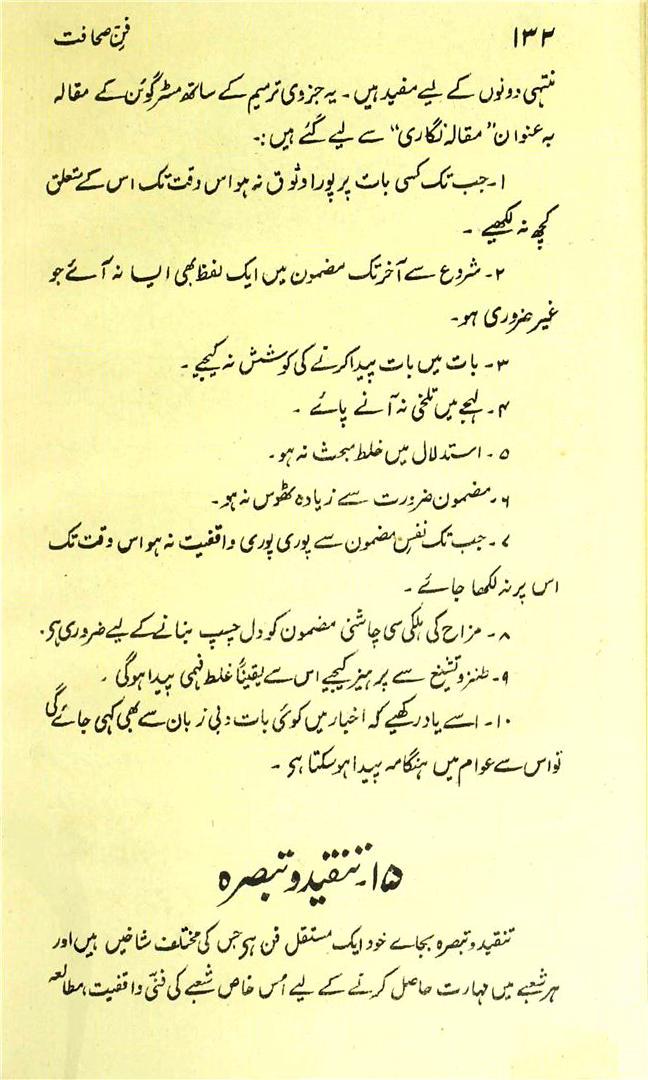 ۱۳۲ فنِّ صحافت
منتہی دونوں کے لیے مفید ہیں ۔ یہ جزوی ترمیم کے ساتھ مسٹر گوئن کے مقالہ
بہ عنوان ”مقالہ نگاری“ سے لیے گئے ہیں :۔
۱۔ جب تک کسی بات پر پورا وثوق نہ ہو اس وقت تک اس کے متعلق
کچھ نہ لکھیے ۔
۲۔ شروع سے آخر تک مضمون میں ایک لفظ بھی ایسا نہ آئے جو
غیر ضروری ہو۔
۳۔ بات میں بات پیدا کرنے کی کوشش نہ کیجیے ۔
۴۔ لہجے میں تلخی نہ آنے پائے ۔
۵۔ استدلال میں خلط مبحث نہ ہو۔
۶۔ مضمون ضرورت سے زیادہ ٹھوس نہ ہو۔
۷۔ جب تک نفسِ مضمون سے پوری پوری واقفیت نہ ہو اس وقت تک
اس پر نہ لکھا جائے ۔
۸۔ مزاح کی ہلکی سی چاشنی مضمون کو دل چسپ بنانے کے لیے ضروری ہی۔
۹۔ طنز و تشنیع سے پرہیز کیجیے اس سے یقیناً غلط فہمی پیدا ہوگی ۔
۱۰۔ اسے یاد رکھیے کہ اخبار میں کوئی بات دبی زبان سے بھی کہی جائے گی
تو اس سے عوام میں ہنگامہ پیدا ہو سکتا ہی ۔
۱۵۔ تنقید و تبصرہ
تنقید و تبصرہ بجائے خود ایک مستقل فن ہی جس کی مختلف شاخیں ہیں اور
ہر شعبے میں مہارت حاصل کرنے کے لیے اُس خاص شعبے کی فنّی واقفیت، مطالعہ